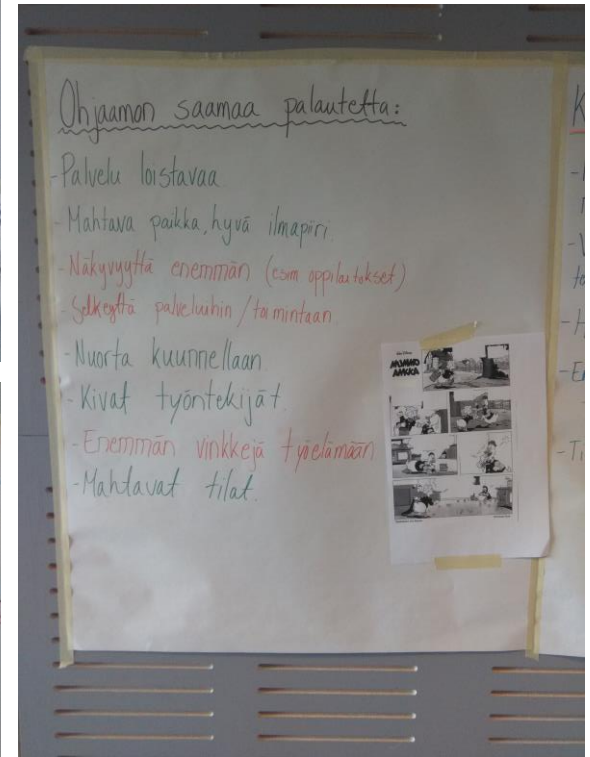 Ohjaamon saamaa palautetta:
-Palvelu loistavaa
-Mahtava paikka, hyvä ilmapiiri
-Näkyvyyttä enemmän (esim oppilaitokset)
-Selkeyttä palveluihin / toimintaan
-Nuorta kuunnellaan.
-Kivat työntekijät.
-Enemmän vinkkejä työelämään
-Mahtavat tilat.
MUMMO
ANKKA
K